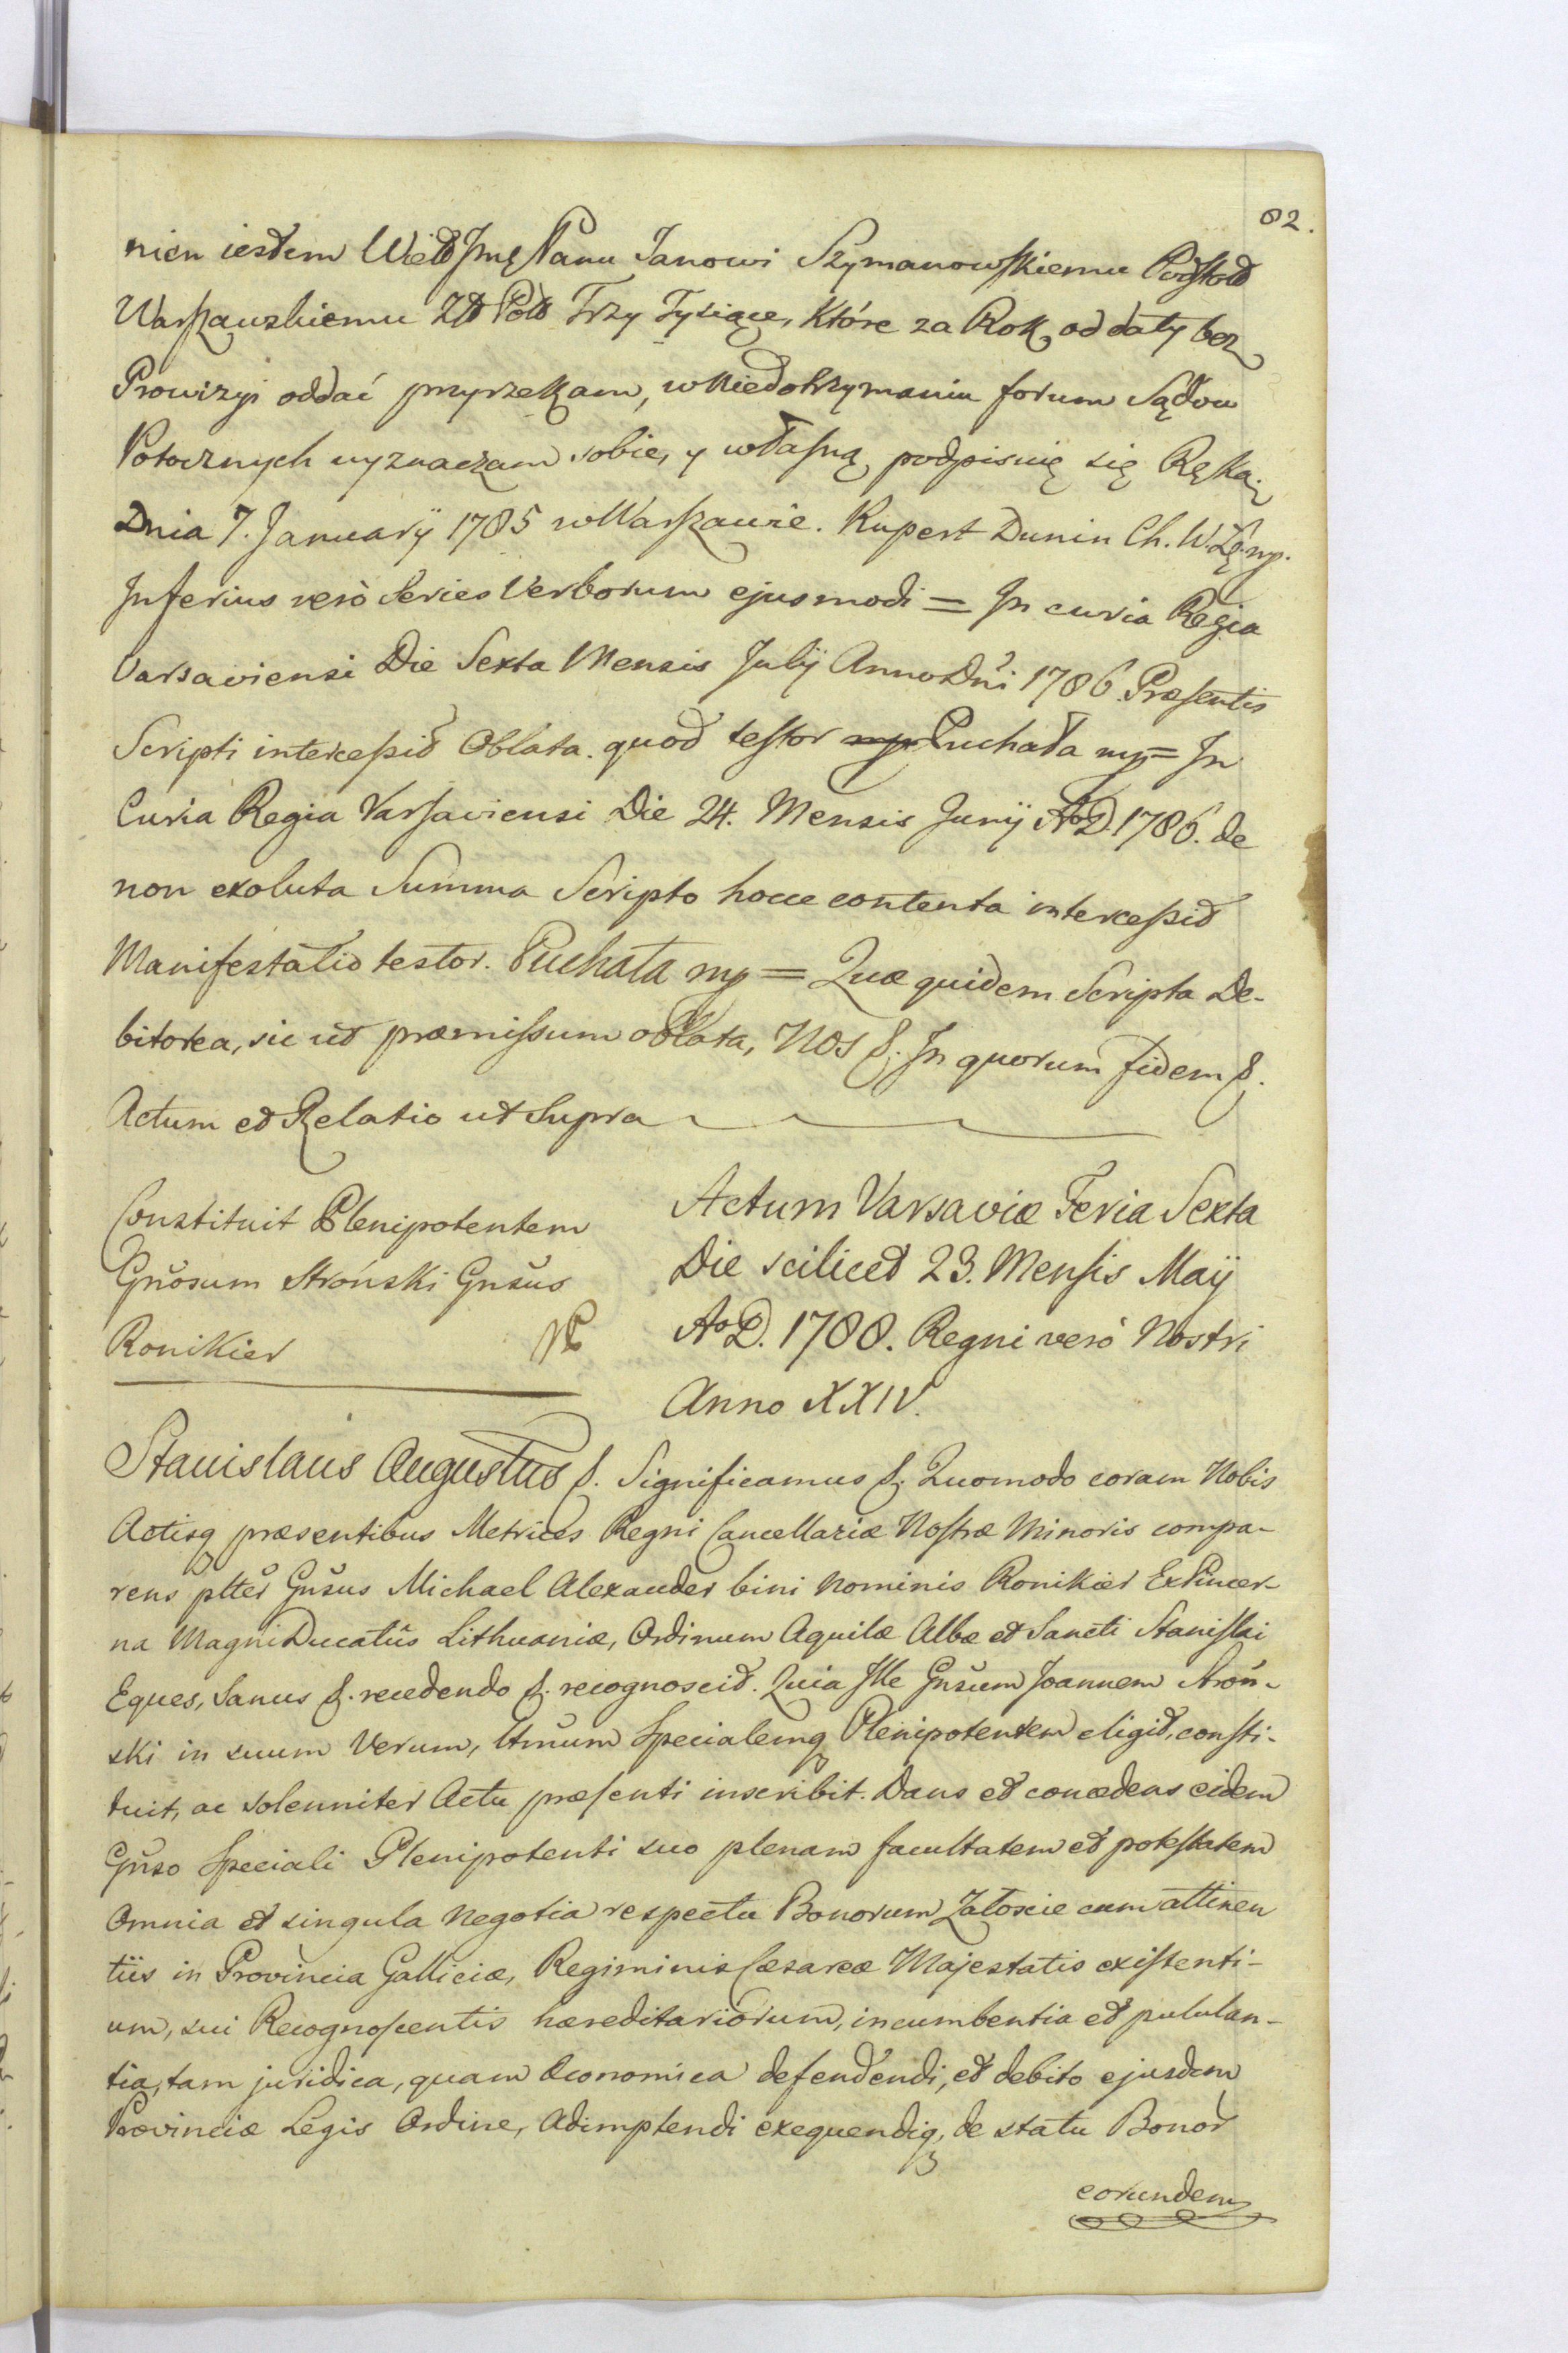 82.
nien iestem Wielo Jmę Panu Janowi Szymanowskiemu Podstol
Warszawskiemu Zł Pols Trzy Tysiące, Które za Rok od daty bez
Prowizyi oddać przyrzekam, w Niedotrzymaniu forum Sądow
Potocznych wyznaczam sobie, y własną podpisuię się Ręką.
Dnia 7. January 1785 w Warszawie. Rupert Dunin Ch. W. Łę. mp.
Inferius verò Series Verborum ejusmodi = In curia Regia
Varsaviensi Die Sexta Mensis Julij Anno Dni 1786. Præsentis
Scripti intercessit Oblata. quod testor Puchała mp = In
Curia Regia Varsaviensi Die 24. Mensis Junij Ao D. 1786. de
non exoluta Summa Scripto hocce contenta intercessit
Manifestatio testor. Puchała mp = Quæ quidem Scripta De-
bitorea, sic ut præmissum oblata, Nos &. In quorum fidem &.
Actum et Relatio ut Supra
Constituit Plenipotentem
Gnosum Stroński Gnsus
Ronikier
Actum Varsaviæ Feria Sexta
Die scilicet 23. Mensis Maij
Ao D. 1788. Regni verò Nostri
Anno XXIV.
Stanislaus Augustus &. Significamus &. Quomodo coram Nobis
Actisq præsentibus Metrices Regni Cancellariæ Nostræ Minoris compa-
rens pltter Gnsus Michael Alexander bini Nominis Ronikier Ex Pincer-
na Magni Ducatûs Lithuaniæ, Ordinum Aquilæ Albæ et Sancti Stanislai
Eques, Sanus &. recedendo &. recognoscit. Quia Ille Gnsum Joannem Stroń-
ski in suum Verum, Ltmum Specialemq Plenipotentem eligit, consti-
tuit, ac solenniter Actu præsenti inscribit. Dans et concedens eidem
Gnso Speciali Plenipotenti suo plenam facultatem et potestatem
Omnia et singula Negotia respectu Bonorum Załoscie cum attinen
tiis in Provincia Galliciæ, Regiminis Cæsareæ Majestatis existenti-
um, sui Recognoscentis hæreditariorum, incumbentia et pululan-
tia, tam juridica, quam Oeconomica defendendi, et debito ejusdem
Provinciæ Legis Ordine, Adimplendi exequendiq, de statu Bonor
eorundem